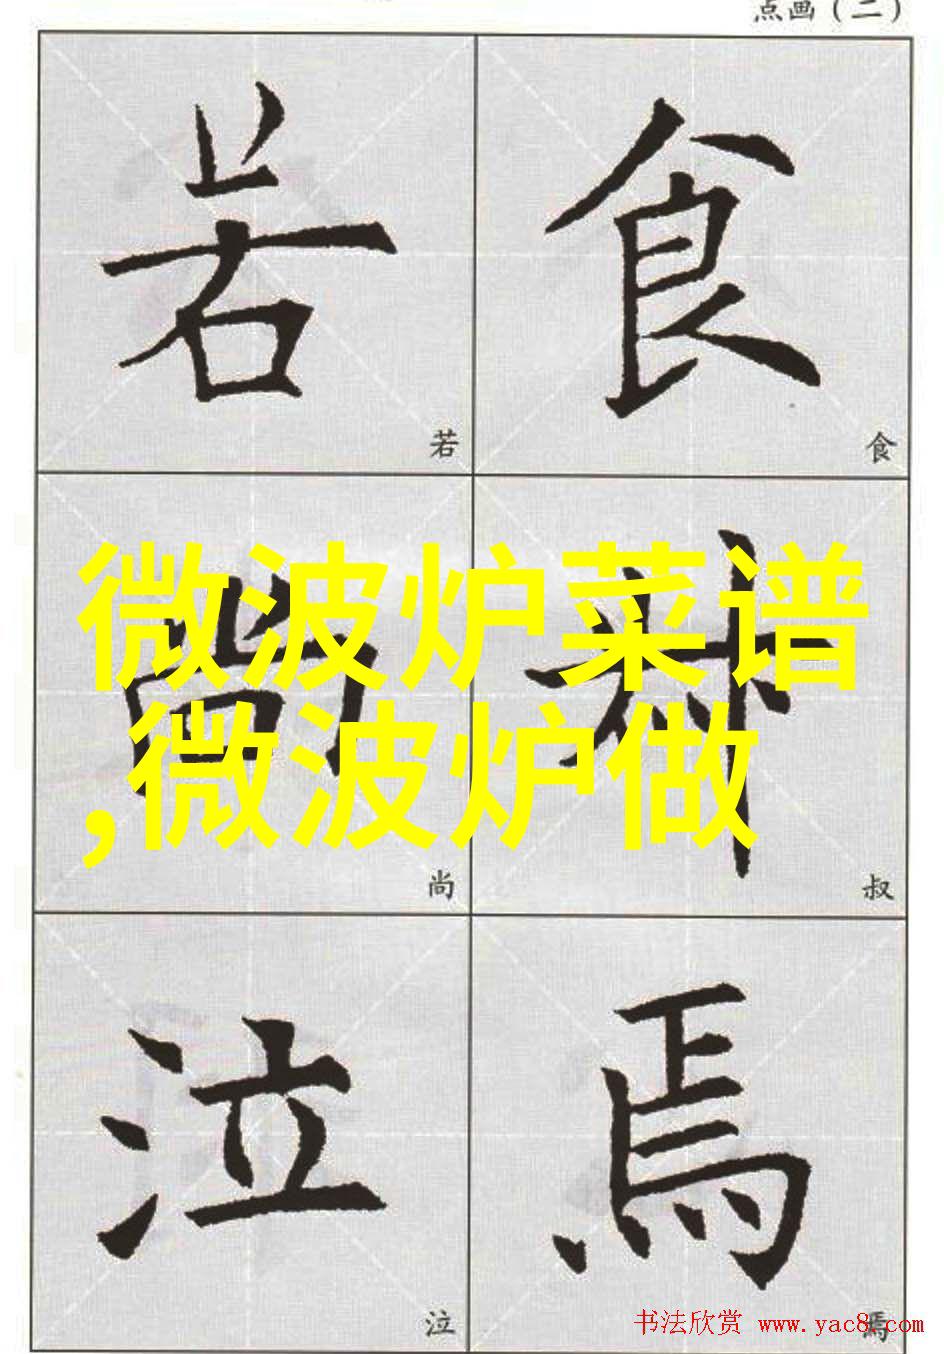 点画（二）
若 食
若 食
微波炉菜谱
,微波炉做
尚 叔
尚 叔
泣 焉
泣 焉
书法欣赏 www.yac8.com